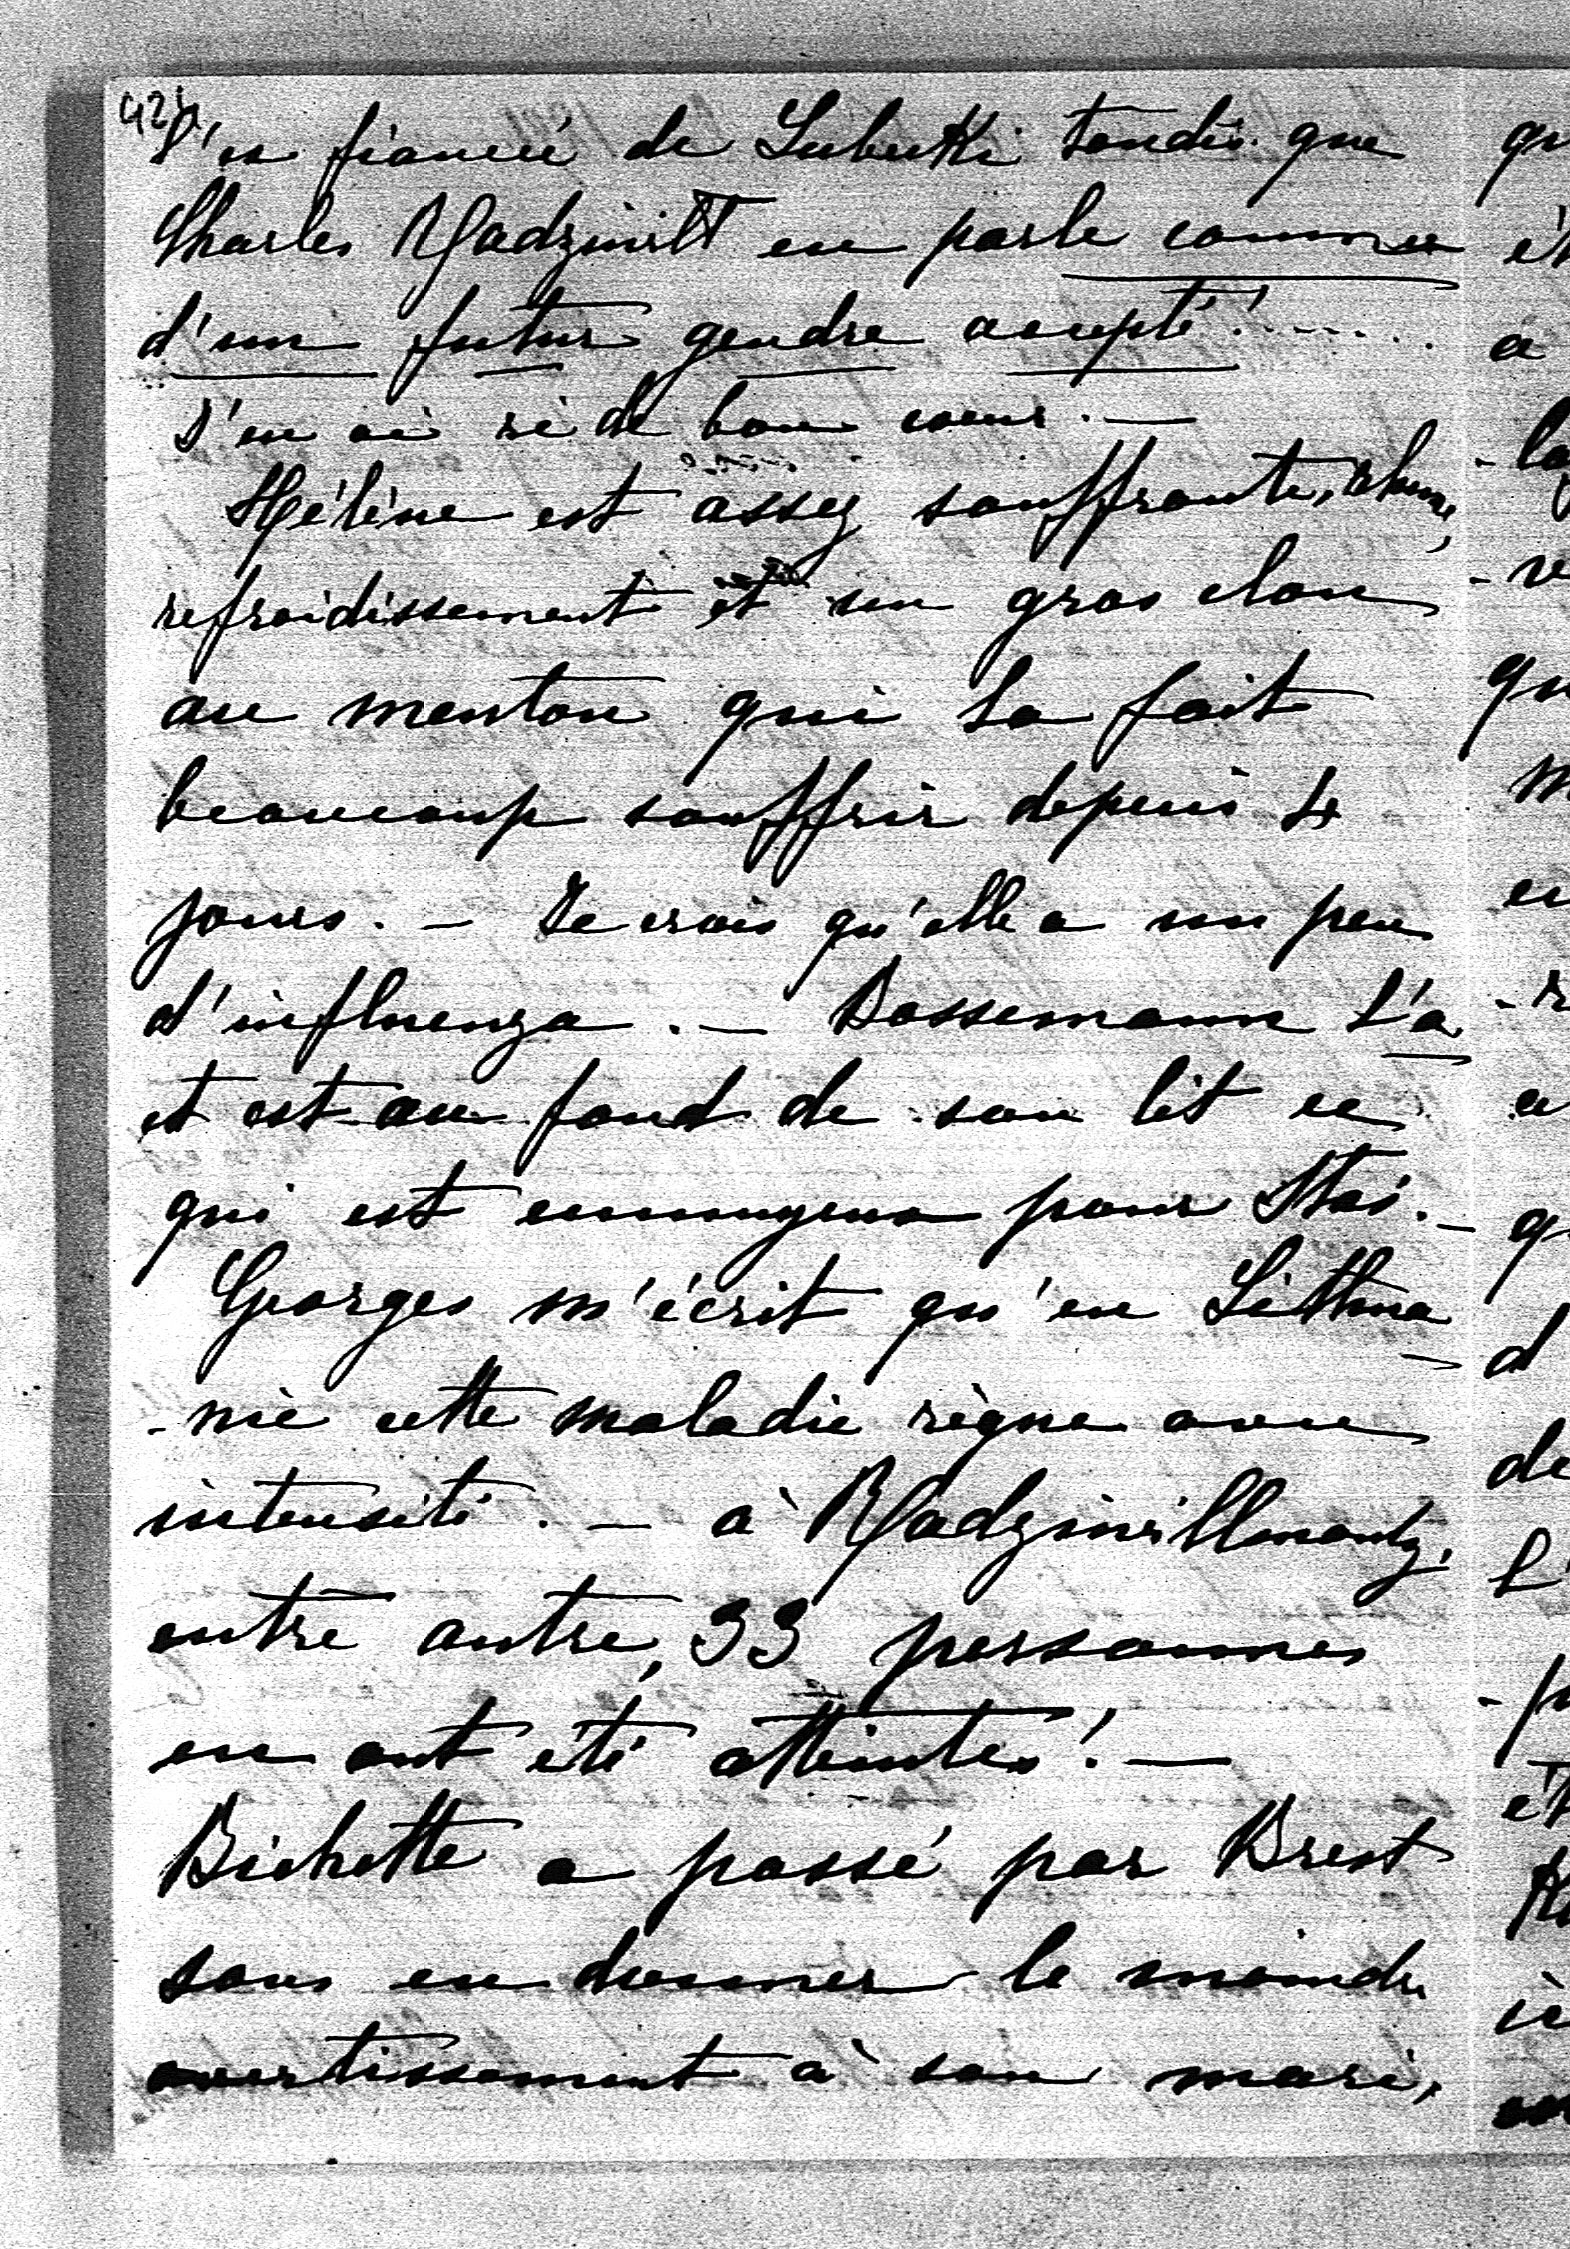 42
l'ex fiancé de Lubecki tandis que
Charles Radziwill en parle comme
d'un futur gendre accepté!.....
J'en ai ri de bon coeur. —
Hélène est assez souffrante, rhume,
refroidissement et un gros clou
au menton qui la fait
beaucoup souffrir depuis 4
jours. — Je crois qu'elle a un peu
d'influenza. — Bossemann l'a
et est au fond de son lit ce
qui est ennuyeux pour Stas. —
Georges m'écrit qu'en Lithua
-nie cette maladie règne avec
intensité. — à Radziwillmonty,
entre autre, 33 personnes
en ont été atteintes! —
Bichette a passé par Brest
sans en donner le moindre
avertissement à son mari,